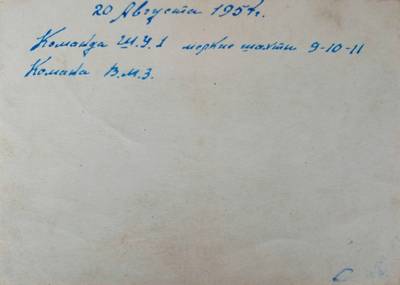 20 Августа 1954.
Команда Ш.У.1 шахты 9-10-11
Команда В.М.З.